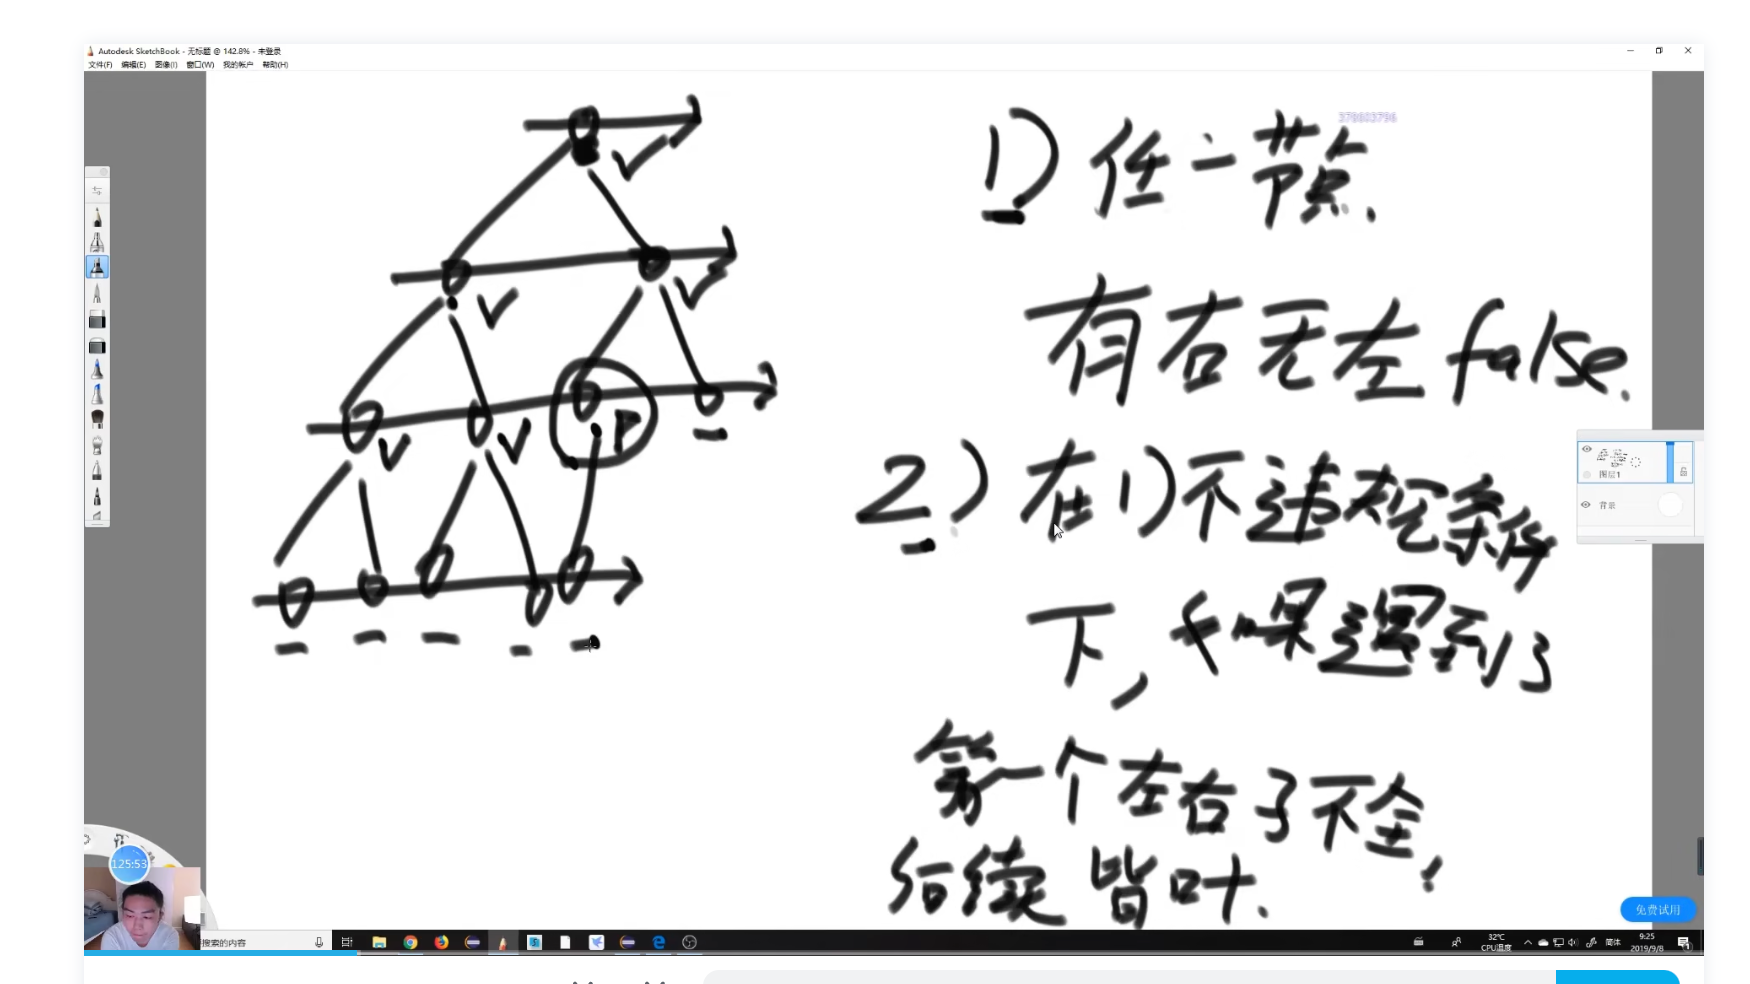 Autodesk SketchBook - 无标题 @ 142.8% - 未登录
文件(F) 编辑(E) 图像(I) 窗口(W) 我的帐户 帮助(H)
378603796
1) 任一节点.
有右无左 false.
2) 在1)不违规条件
下,如果遇到了
第一个左右子不全,
后续皆叶.
图层1
背景
125:53
免费试用
搜索的内容
32℃
CPU温度
简体
9:25
2019/9/8